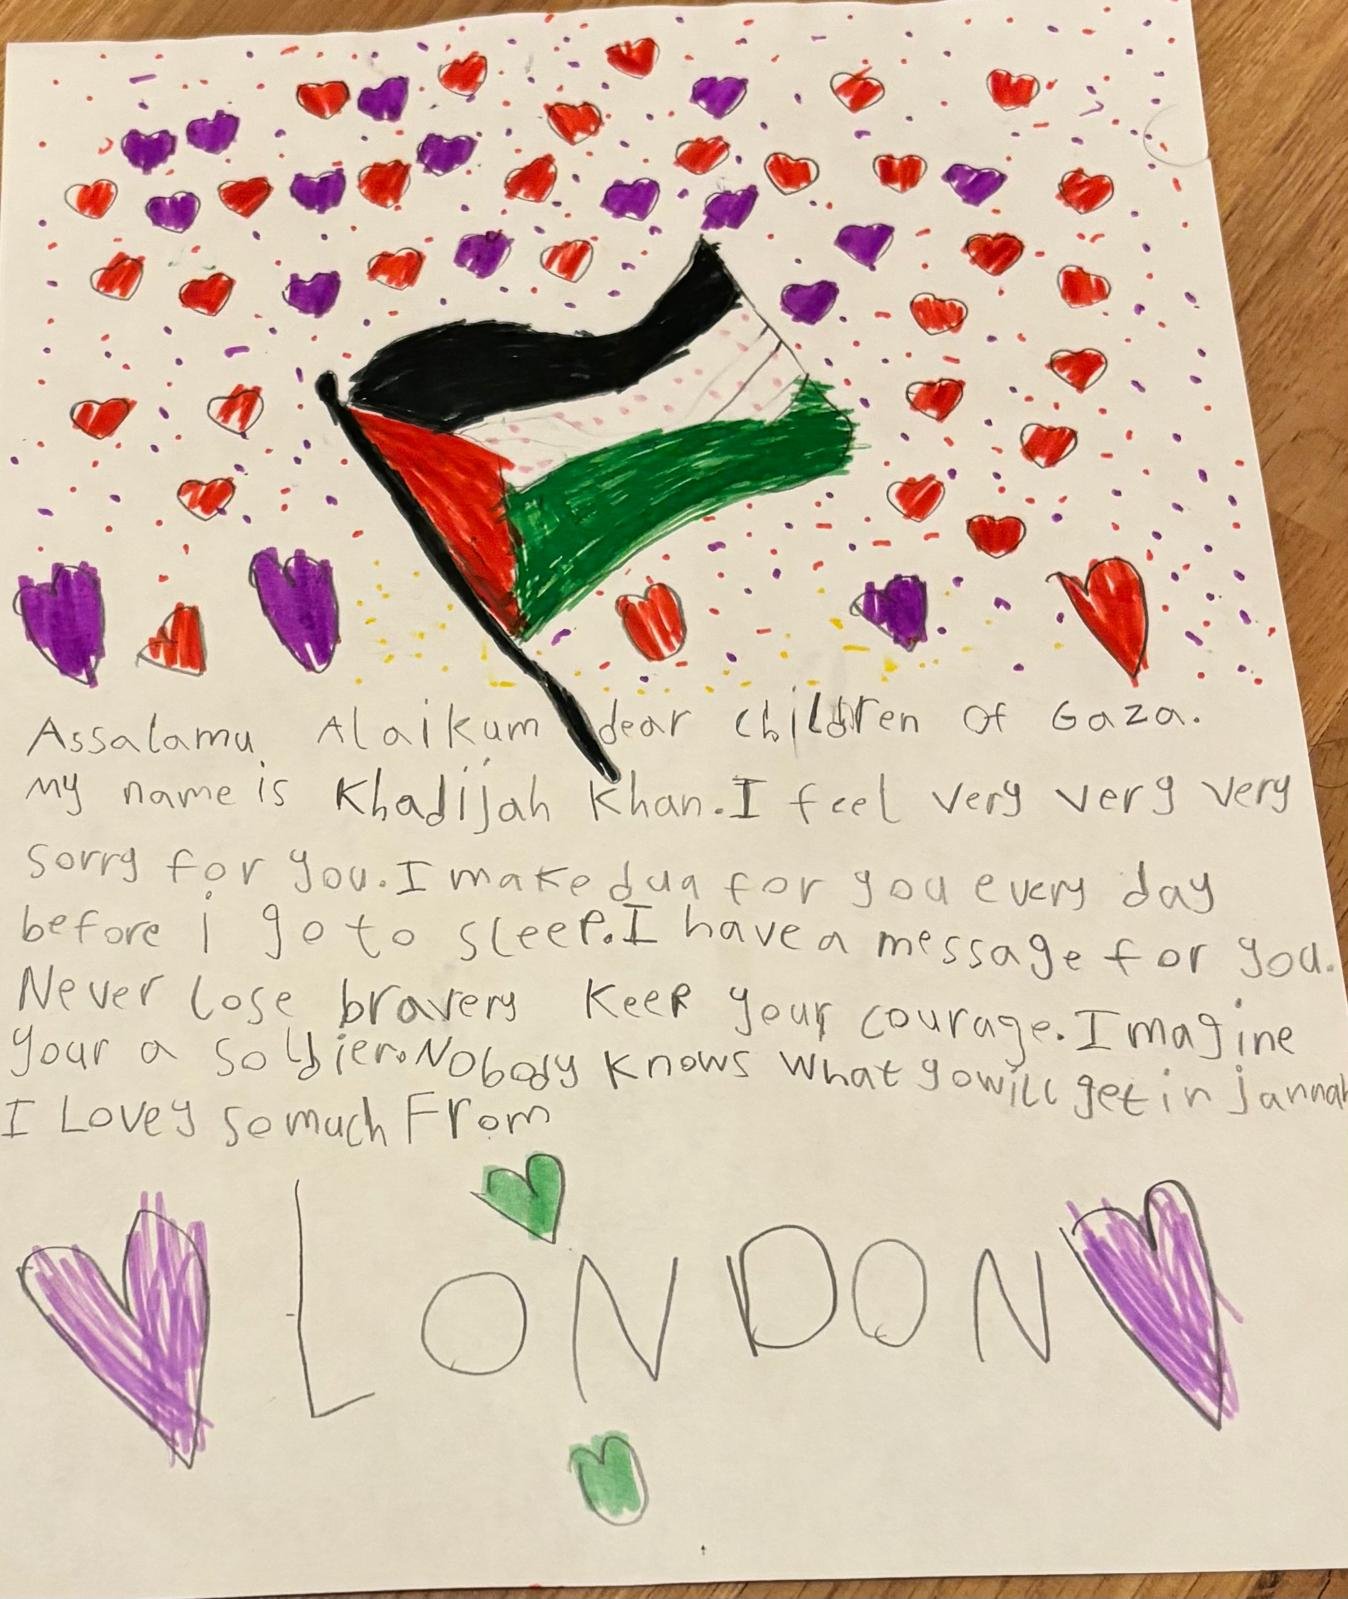 Assalamu Alaikum dear children of Gaza.
My name is Khadijah Khan. I feel very very very
sorry for you. I make dua for you every day
before i go to sleep. I have a message for you.
Never lose bravery keep your courage. Imagine
your a soldier. Nobody knows what yo will get in jannah
I Love y so much From
LONDON